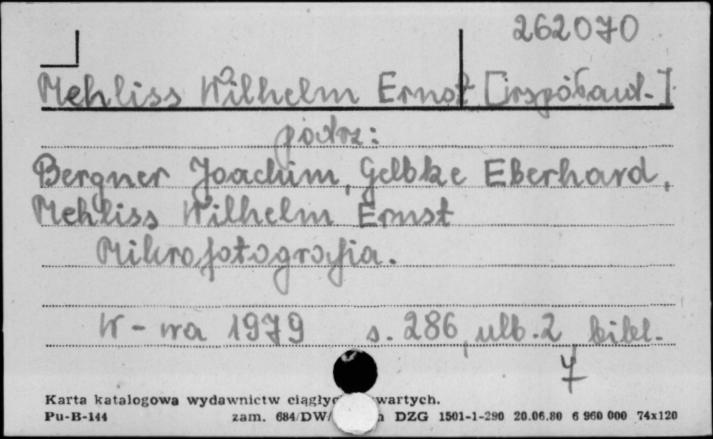 262070
Mehliss Wilhelm Ernst [współaut.]
podrz:
Bergner Joachim, Gelbke Eberhard,
Mehliss Wilhelm Ernst
Mikrofotografia.
W-wa 1979 s. 286, ulb. 2 bibl.
7
Karta katalogowa wydawnictw
Pu-B-144 zam. 684/DW/ DZG 1501-1-290 20.06.80 6 960 000 74x120